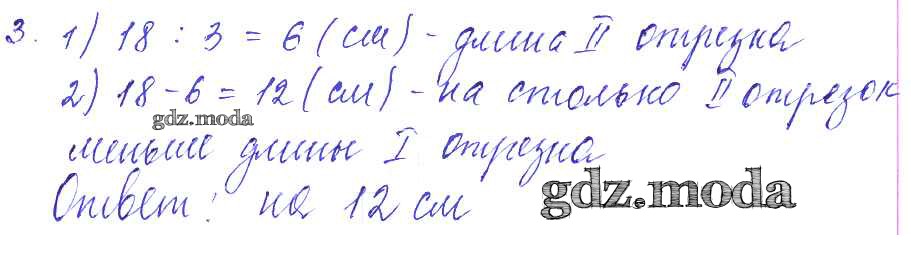 3. 1) 18 : 3 = 6 (см) - длина II отрезка
2) 18 - 6 = 12 (см) - на столько II отрезок
gdz.moda
меньше длины I отрезка
Ответ: на 12 см
gdz.moda